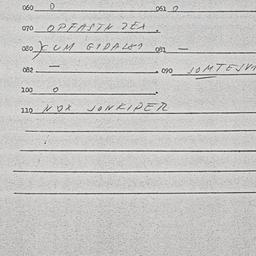 060 0 061 0
070 OPFASTN ZEX
080 XUM GIDALES 081 —
082 — 090 JOMTEJVI
100 0
110 NOX JONKIPER